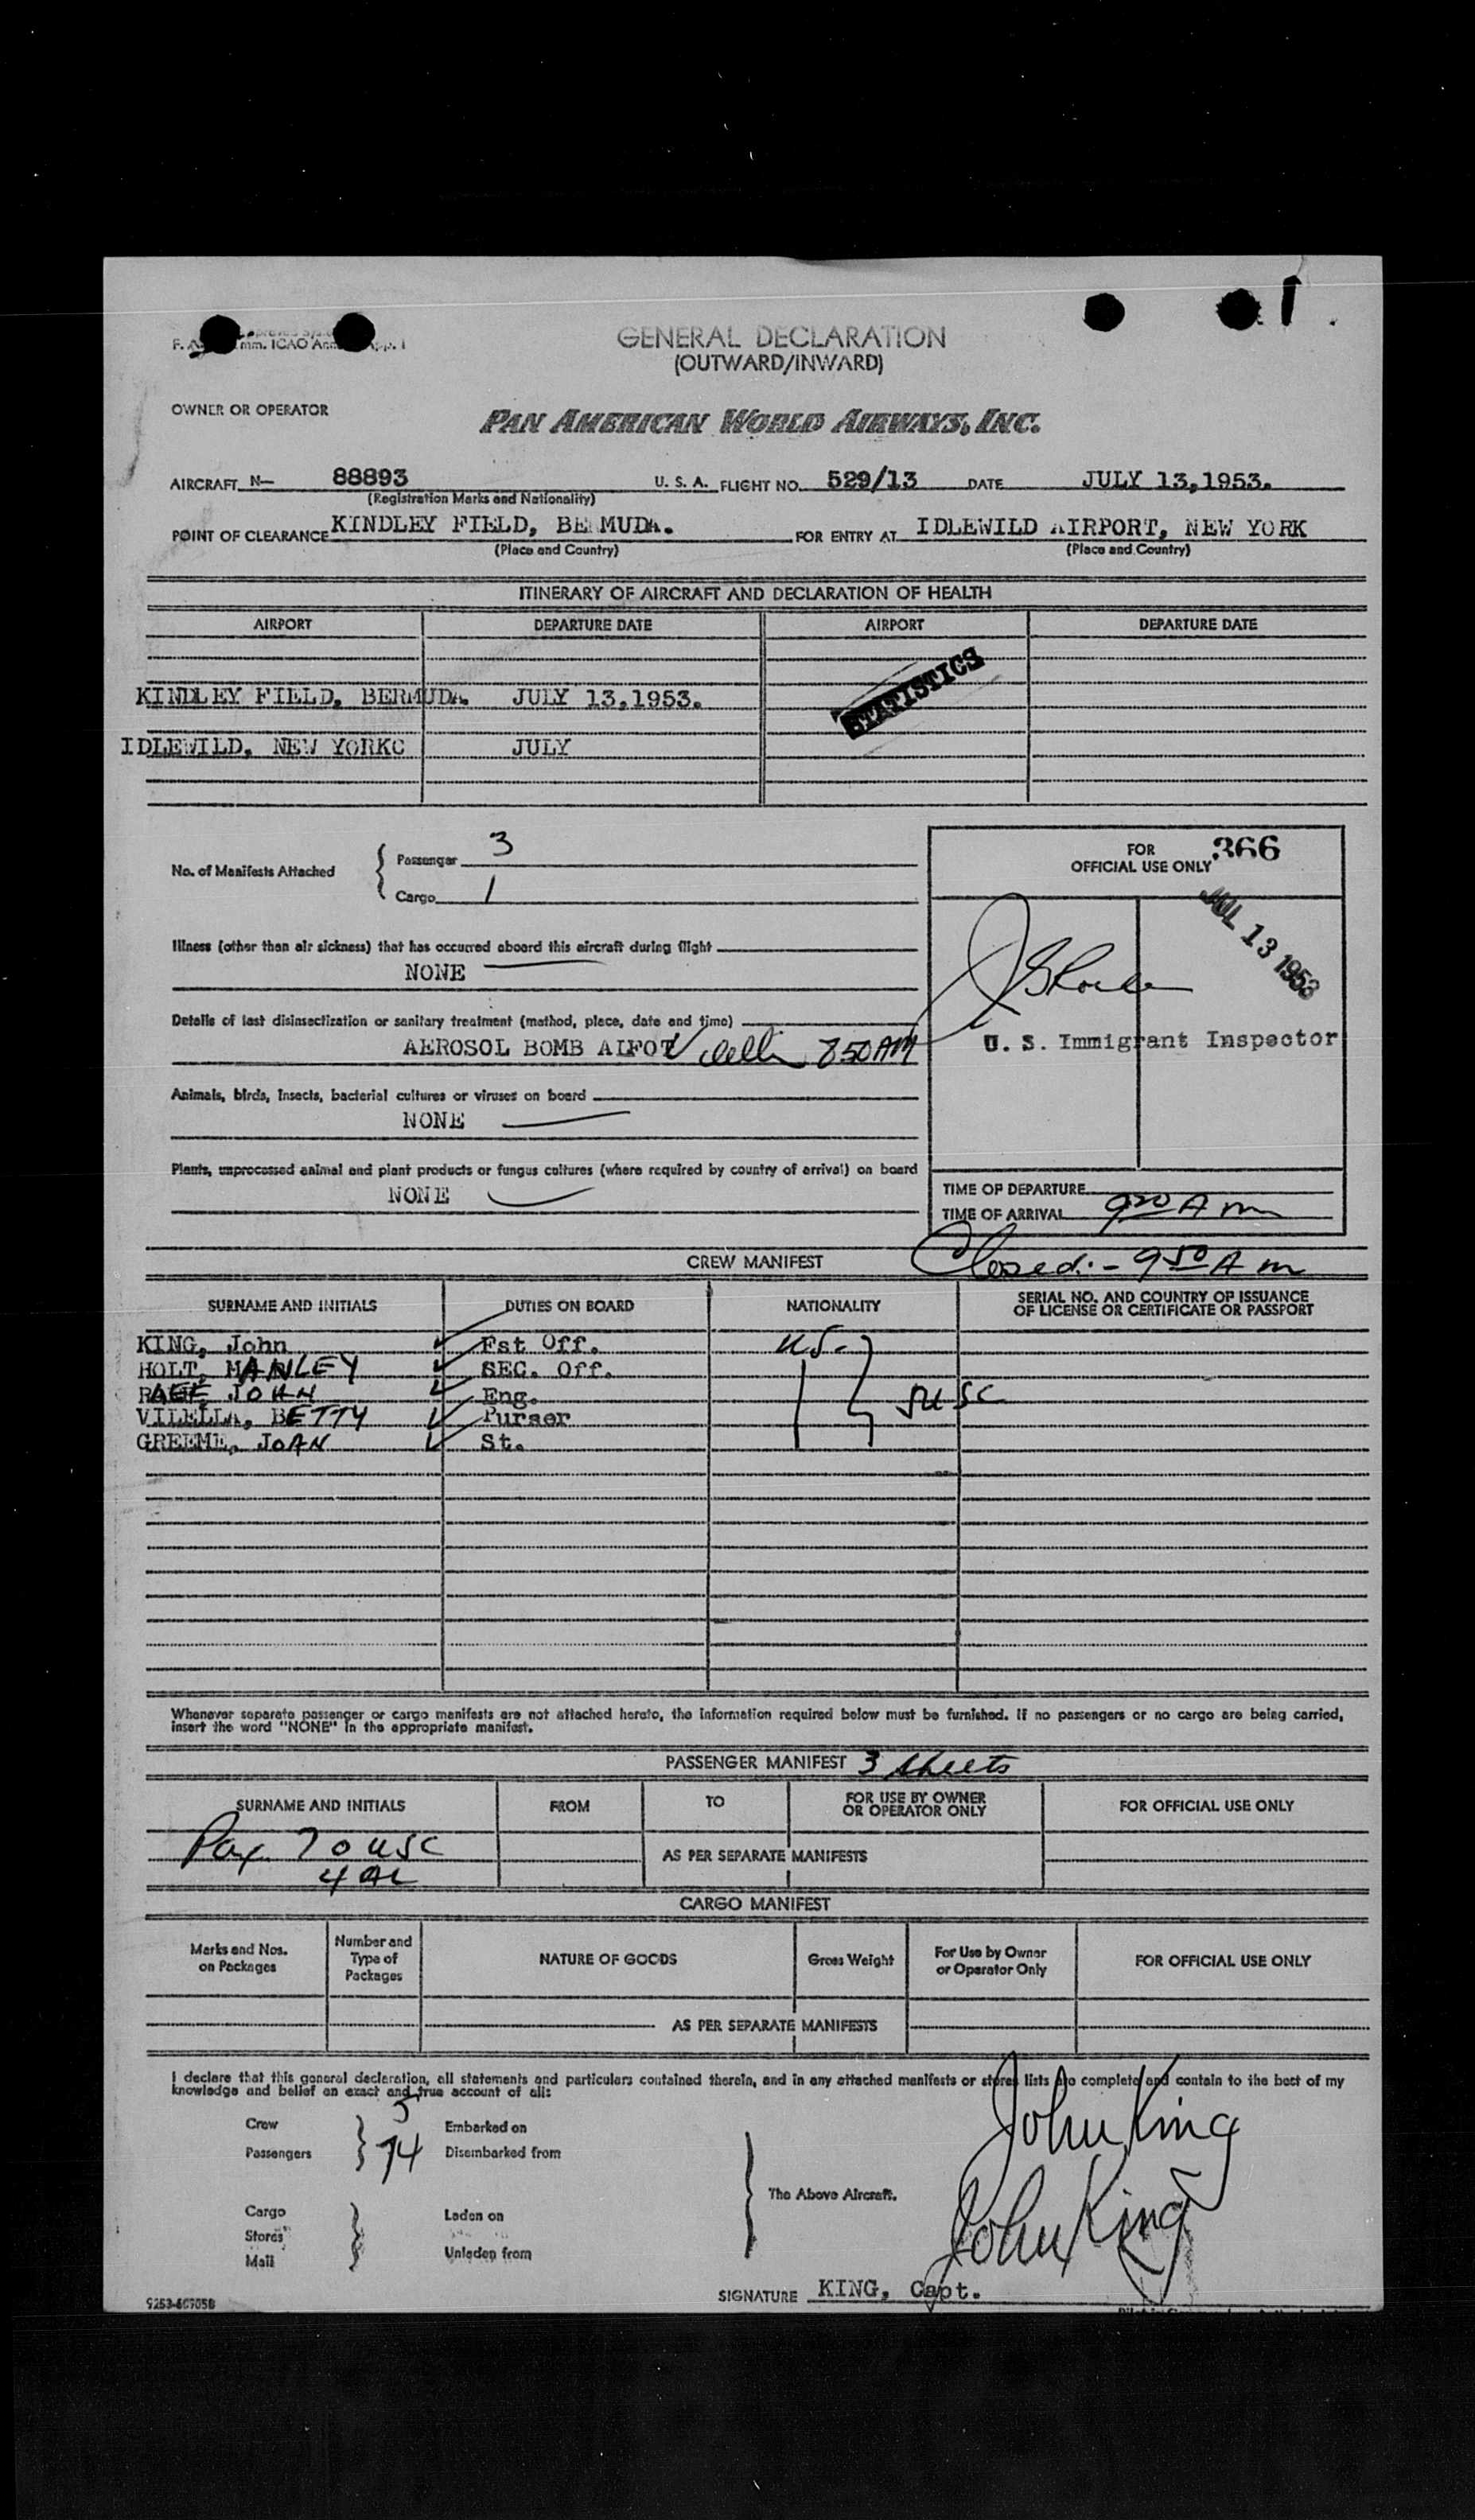 1
GENERAL DECLARATION
mm. ICAO
(OUTWARD/INWARD)
OWNER OR OPERATOR
PAN AMERICAN WORLD AIRWAYS, INC.
AIRCRAFT N— 88893 U. S. A. FLIGHT NO. 529/13 DATE JULY 13,1953.
(Registration Marks and Nationality)
POINT OF CLEARANCE KINDLEY FIELD, BERMUDA. FOR ENTRY AT IDLEWILD AIRPORT, NEW YORK
(Place and Country) (Place and Country)
ITINERARY OF AIRCRAFT AND DECLARATION OF HEALTH
AIRPORT DEPARTURE DATE AIRPORT DEPARTURE DATE
STATISTICS
KINDLEY FIELD, BERMUDA. JULY 13,1953.
IDLEWILD, NEW YORKC JULY
No. of Manifests Attached
Passenger 3
Cargo 1
FOR OFFICIAL USE ONLY 366
JUL 13 1953
Illness (other than air sickness) that has occurred aboard this aircraft during flight
NONE
Details of last disinsectization or sanitary treatment (method, place, date and time)
AEROSOL BOMB 850 AM
U. S. Immigrant Inspector
Animals, birds, insects, bacterial cultures or viruses on board
NONE
Plants, unprocessed animal and plant products or fungus cultures (where required by country of arrival) on board
NONE
TIME OF DEPARTURE
TIME OF ARRIVAL 920 A m
CREW MANIFEST Closed:- 950 A m
SURNAME AND INITIALS DUTIES ON BOARD NATIONALITY SERIAL NO. AND COUNTRY OF ISSUANCE OF LICENSE OR CERTIFICATE OR PASSPORT
KING, John Fst Off. U.S.
HOLT, MANLEY SEC. Off.
JOHN Eng. 5USC
VILELLA, BETTY Purser
GREEME, JOAN St.
Whenever separate passenger or cargo manifests are not attached hereto, the information required below must be furnished. If no passengers or no cargo are being carried,
insert the word "NONE" in the appropriate manifest.
PASSENGER MANIFEST 3 sheets
SURNAME AND INITIALS FROM TO FOR USE BY OWNER OR OPERATOR ONLY FOR OFFICIAL USE ONLY
Pax. 70 USC
AS PER SEPARATE MANIFESTS
4 al
CARGO MANIFEST
Marks and Nos. on Packages Number and Type of Packages NATURE OF GOODS Gross Weight For Use by Owner or Operator Only FOR OFFICIAL USE ONLY
AS PER SEPARATE MANIFESTS
I declare that this general declaration, all statements and particulars contained therein, and in any attached manifests or stores lists are complete and contain to the best of my
knowledge and belief an exact and true account of all:
Crew 5 Embarked on
Passengers 74 Disembarked from
John King
The Above Aircraft.
Cargo Laden on
Stores
Mail Unladen from
John King
SIGNATURE KING, Capt.